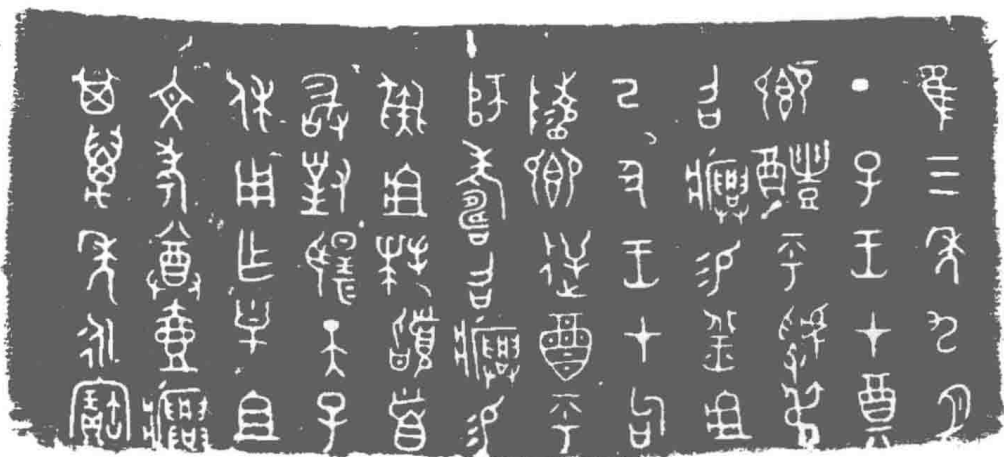 隹三年九月
丁子王才奠
卿醴乎虢弔
召𤼈易羔俎
己丑王才句
陵卿逆酉乎
師壽召𤼈易
彘俎拜稽首
敢對揚天子
休用乍皇且
文考尊壺𤼈
其萬年永寶